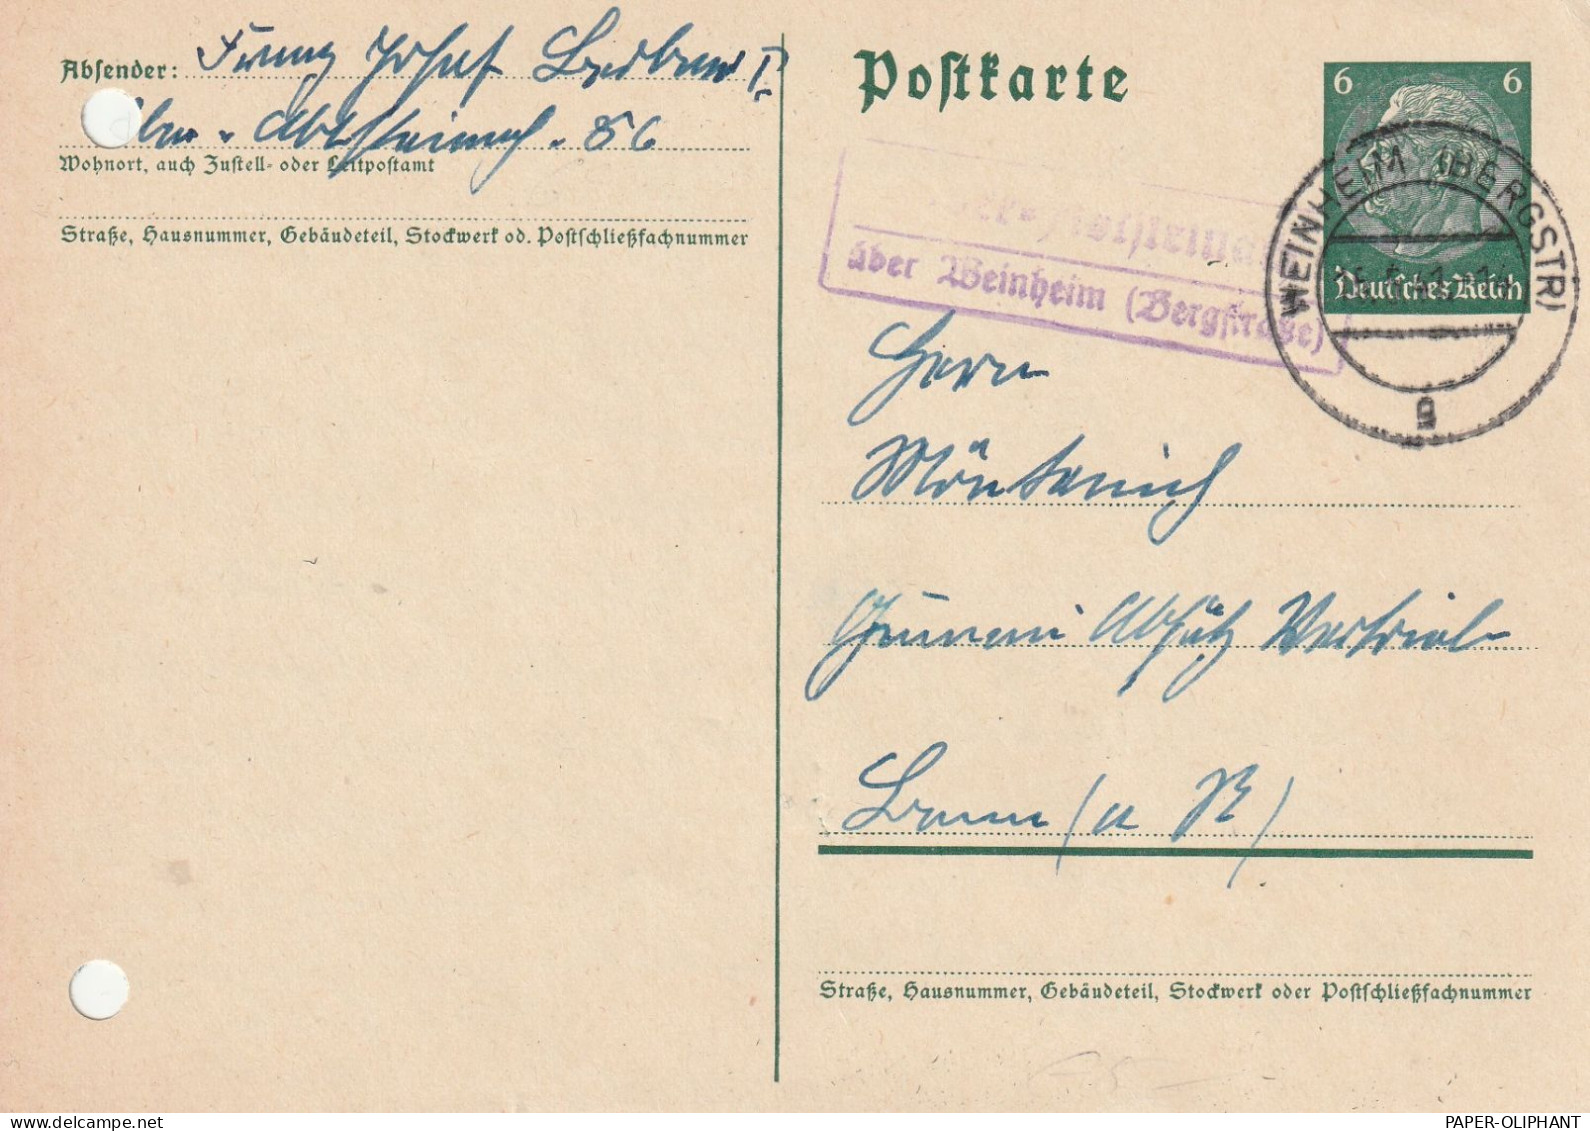 Absender: Franz Josef
Ober-Abtsteinach. 86
Wohnort, auch Zustell- oder Leitpostamt
Straße, Hausnummer, Gebäudeteil, Stockwerk od. Postschließfachnummer
Postkarte
6 6
Deutsches Reich
WEINHEIM (BERGSTR)
g
über Weinheim (Bergstraße)
Herrn
Gummi Absatz Vertrieb
Bonn (a R)
Straße, Hausnummer, Gebäudeteil, Stockwerk oder Postschließfachnummer
PAPER-OLIPHANT